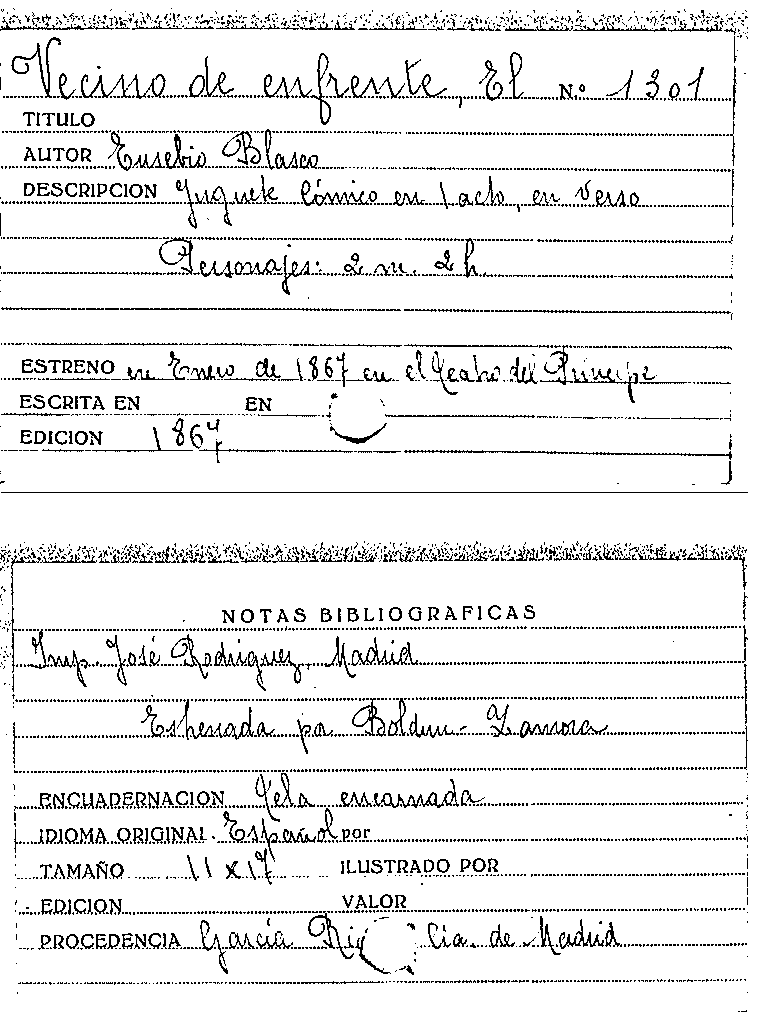 Vecino de enfrente, El Nº 1301
TITULO
AUTOR Eusebio Blasco
DESCRIPCION Juguete Cómico en 1 acto, en verso
Personajes: 2 m. 2 h.
ESTRENO en Enero de 1867 en el Teatro del Principe
ESCRITA EN EN
EDICION 1867
NOTAS BIBLIOGRAFICAS
Imp. José Rodriguez, Madrid
Estrenada por Boldun - Zamora
ENCUADERNACION Tela encarnada
IDIOMA ORIGINAL. Español por
TAMAÑO 11 x 17 ILUSTRADO POR
EDICION VALOR
PROCEDENCIA García Cia. de Madrid